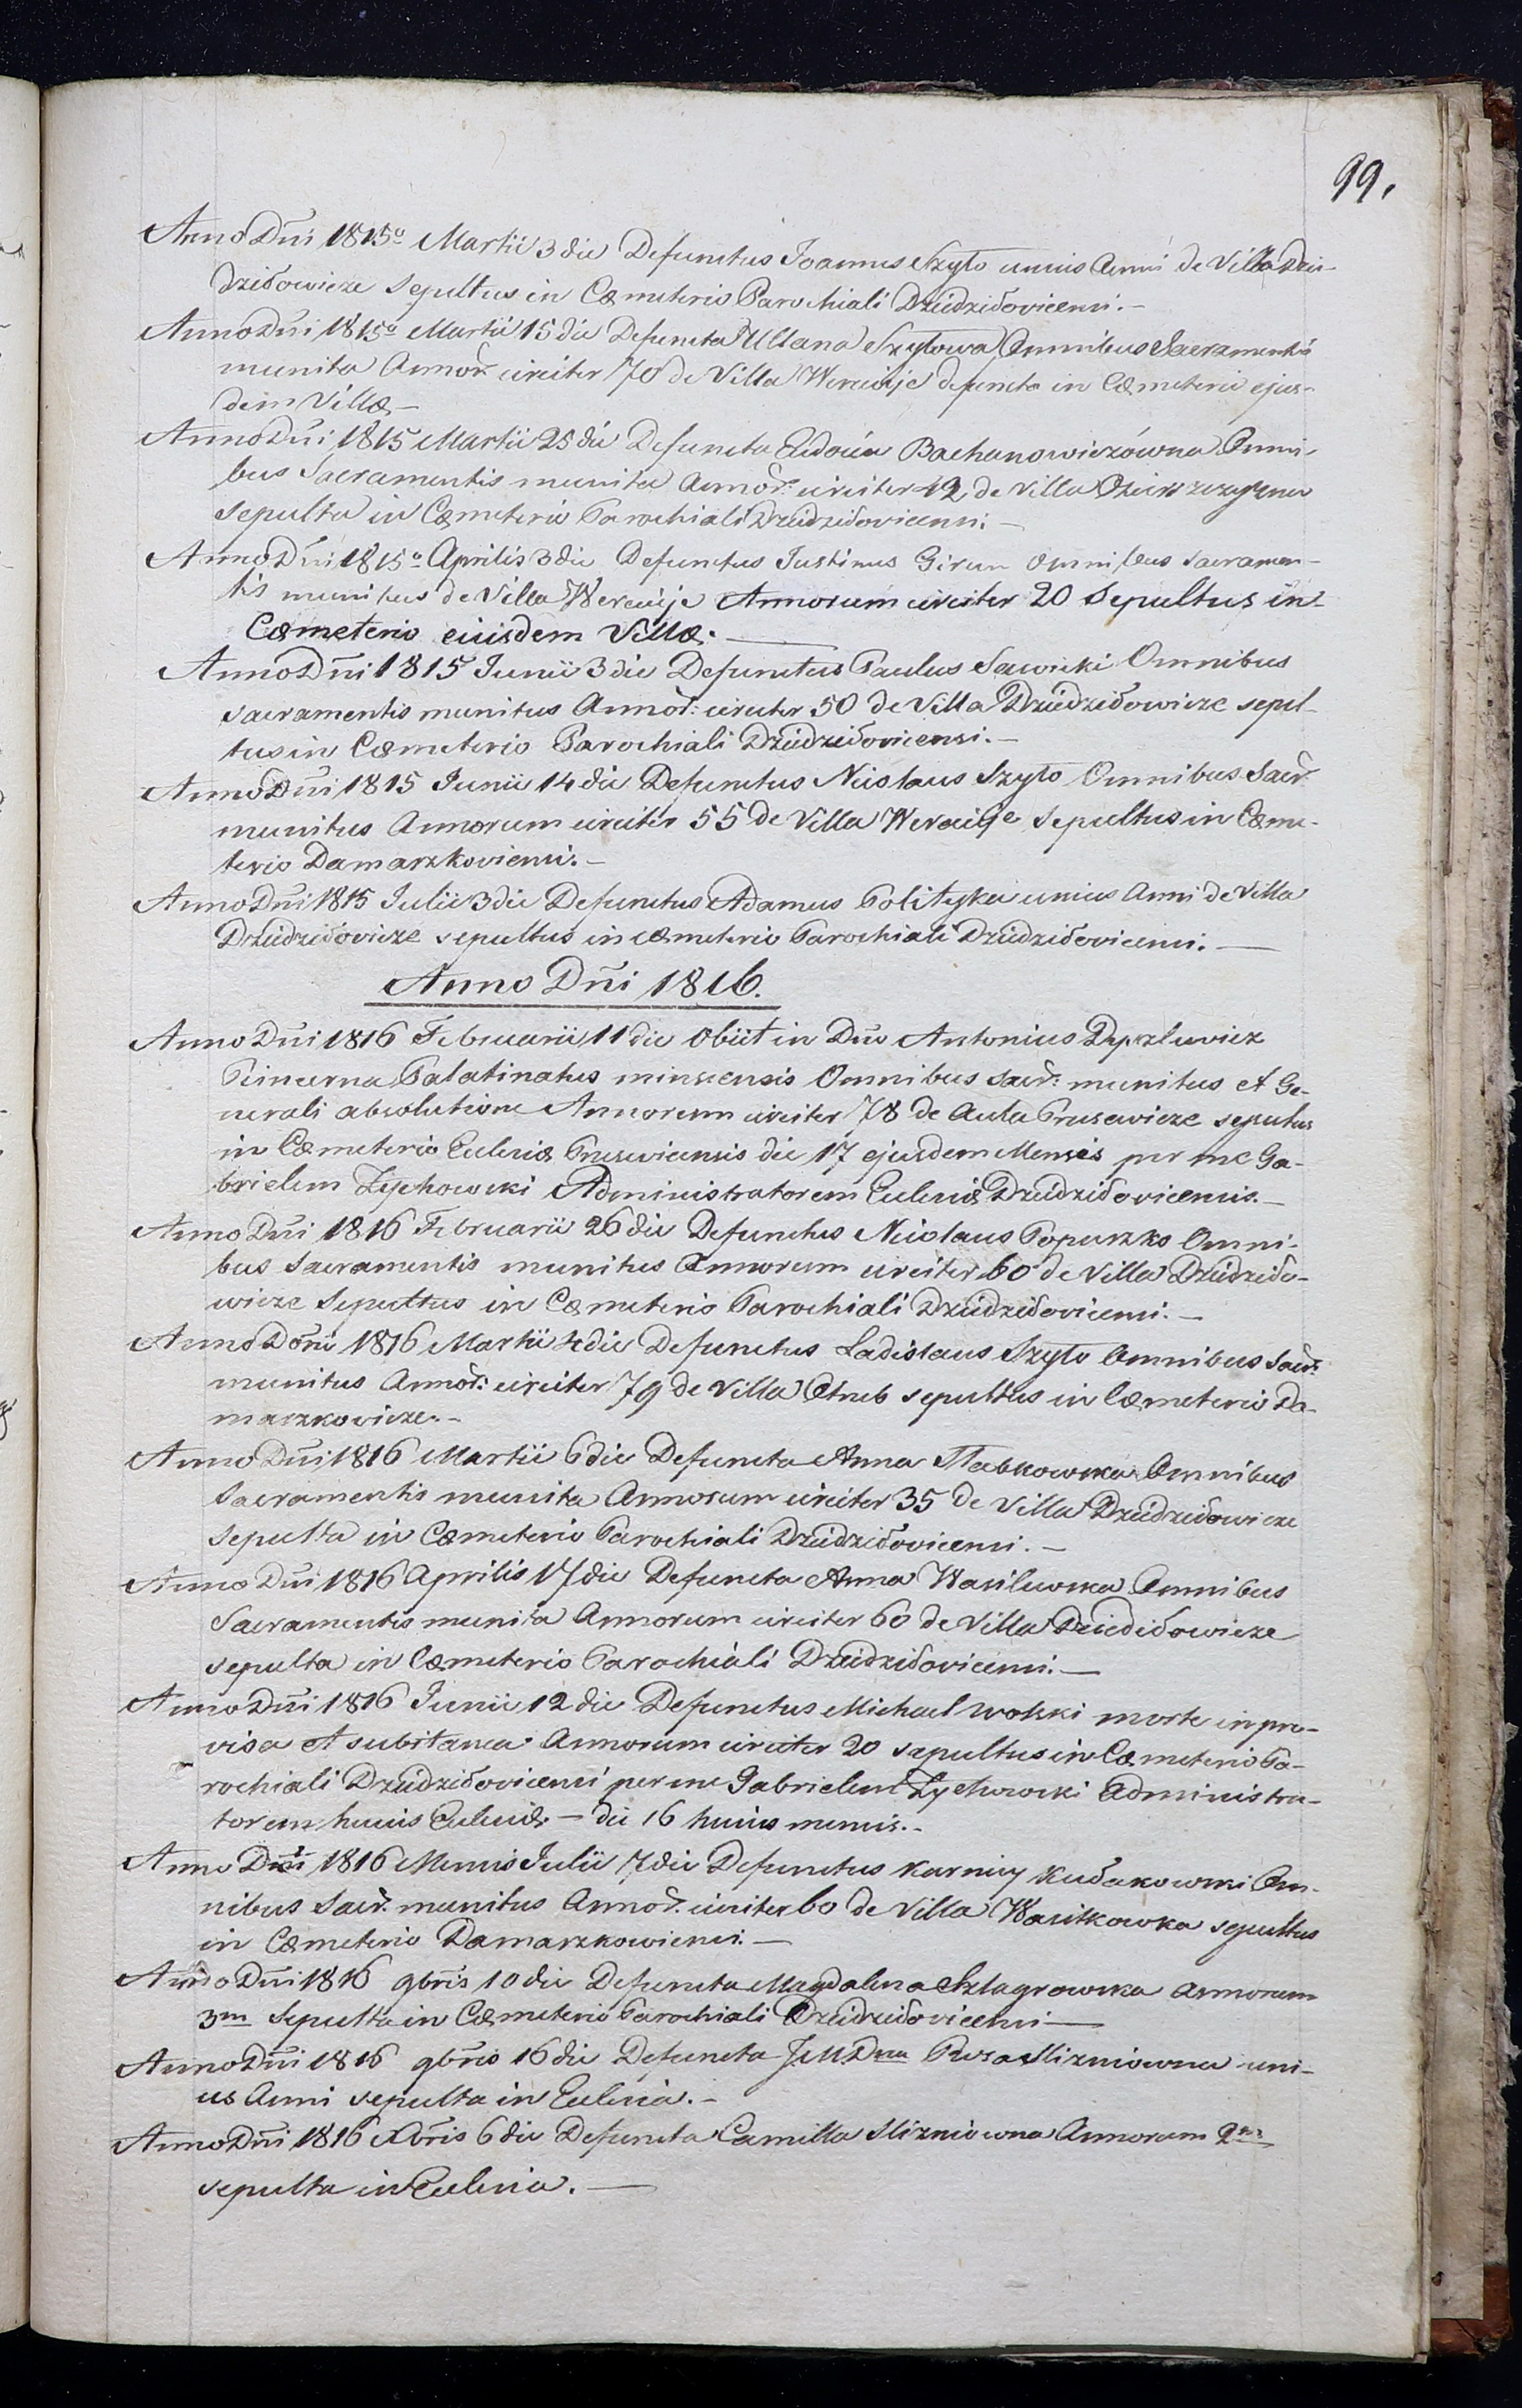 99.
Anno Dñi 1815º Martii 3 die Defunctus Joannes Szyło unius Anni de Villa Dzie-
dziłowicze Sepultus in Cœmeterio Parochiali Dziedziłovicensi.-
Anno Dñi 1815º Martii 15 die Defuncta Ullana Szyłowa Omnibus Sacramentis
munita Annor: circiter 70 de Villa Wereicije defuncta in Cœmeterio ejus-
dem Villæ -
Anno Dñi 1815 Martii 25 die Defuncta Eudocia Bachanowiczówna Omni-
bus Sacramentis munita Annor: circiter 12, de Villa
Sepulta in Cœmeterio Parochiali Dziedziłovicensi. -
Anno Dñi 1815º Aprilis 3 die Defunctus Justinus Girun Omnibus sacramen-
tis munitus de Villa Wereicije Annorum circiter 20 Sepultus in
Cœmeterio eiusdem Villæ. -
Anno Dñi 1815 Junii 3 die Defunctus Paulus Sawicki Omnibus
sacramentis munitus Annor: circiter 50 de Villa Dziedziłowicze sepul-
tus in Cœmeterio Parochiali Dziedziłovicensi. -
Anno Dñi 1815 Junii 14 die Defunctus Nicolaus Szyło Omnibus Sacr.
munitus Annorum circiter 55 de Villa Wereicije Sepultus in Cœme-
terio Damarzkoviensi. -
Anno Dñi 1815 Julii 3 die Defunctus Adamus Polityka unius Anni de Villa
Dziedziłovicze sepultus in cœmeterio Parochiali Dziedziłovicensi. -
Anno Dñi 1816.
Anno Dñi 1816 Februarii 11 die Obiit in Dno Antonius
Pincerna Palatinatus minscensis Omnibus sacr: munitus et Ge-
nerali absolutione Annorum circiter 78 de Aula Prusewicze sepultus
in Cœmeterio Ecclesiæ Prusevicensis die 17 ejusdem Mensis per me Ga-
brielem Zychowski Administratorem Ecclesiæ Dziedziłovicensis. -
Anno Dñi 1816 Februarii 26 die Defunctus Nicolaus Popuszko Omni-
bus Sacramentis munitus Annorum circiter 60 de Villa Dziedziło-
wicze Sepultus in Cœmeterio Parochiali Dziedziłovicensi. -
Anno Domi 1816 Martii 4 die Defunctus Ladislaus Szyło Omnibus Sacr:
munitus Annor: circiter 79 de Villa Chneb sepultus in Cœmeterio Da-
marzkowicze. -
Anno Dñi 1816 Martii 6 die Defuncta Anna Słabkowska Omnibus
Sacramentis munita Annorum circiter 35 de Villa Dziedziłowicze
Sepulta in Cœmeterio Parochiali Dziedziłovicensi. -
Anno Dñi 1816 Aprilis 17 die Defuncta Anna Wasilewska Omnibus
Sacramentis munita Annorum circiter 60 de Villa Dziediłowicze
sepulta in Cœmeterio Parochiali Dziedziłovicensi. -
Anno Dñi 1816 Junii 12 die Defunctus Michael Wolski morte inpro-
visa et subitanea Annorum circiter 20 sepultus in Cœmeterio Pa-
rochiali Dziedziłovicensi per me Gabrielem Zychowski Administra-
torem huius Ecclesiæ - die 16 huius mensis. -
Anno Dñi 1816 Mensis Julii 7 die Defunctus Karniey Kudakowski Om-
nibus Sacr. munitus Annor. circiter 60 de Villa Wasilkowka sepultus
in Cœmeterio Damarzkowiensi. -
Anno Dñi 1816 9bris 10 die Defuncta Magdalena Szlagrowska Annorum
3m Sepulta in Cœmeterio Parochiali Dziedziłovicensi -
Anno Dñi 1816 9bris 16 die Defuncta Dna Rosa Slizniowna uni-
us Anni sepulta in Ecclesia. -
Anno Dñi 1816 Xbris 6 die Defuncta Camilla Slizniowna Annorum 2m
sepulta in Ecclesia. -